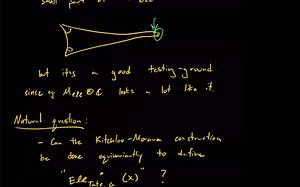 small part of
but it's a good testing-ground
since eg looks a lot like it.
Natural question:
- Can the Kitchloo-Morava construction
be done equivariantly to define
"Ell_{Tate, G}^* (X)" ?